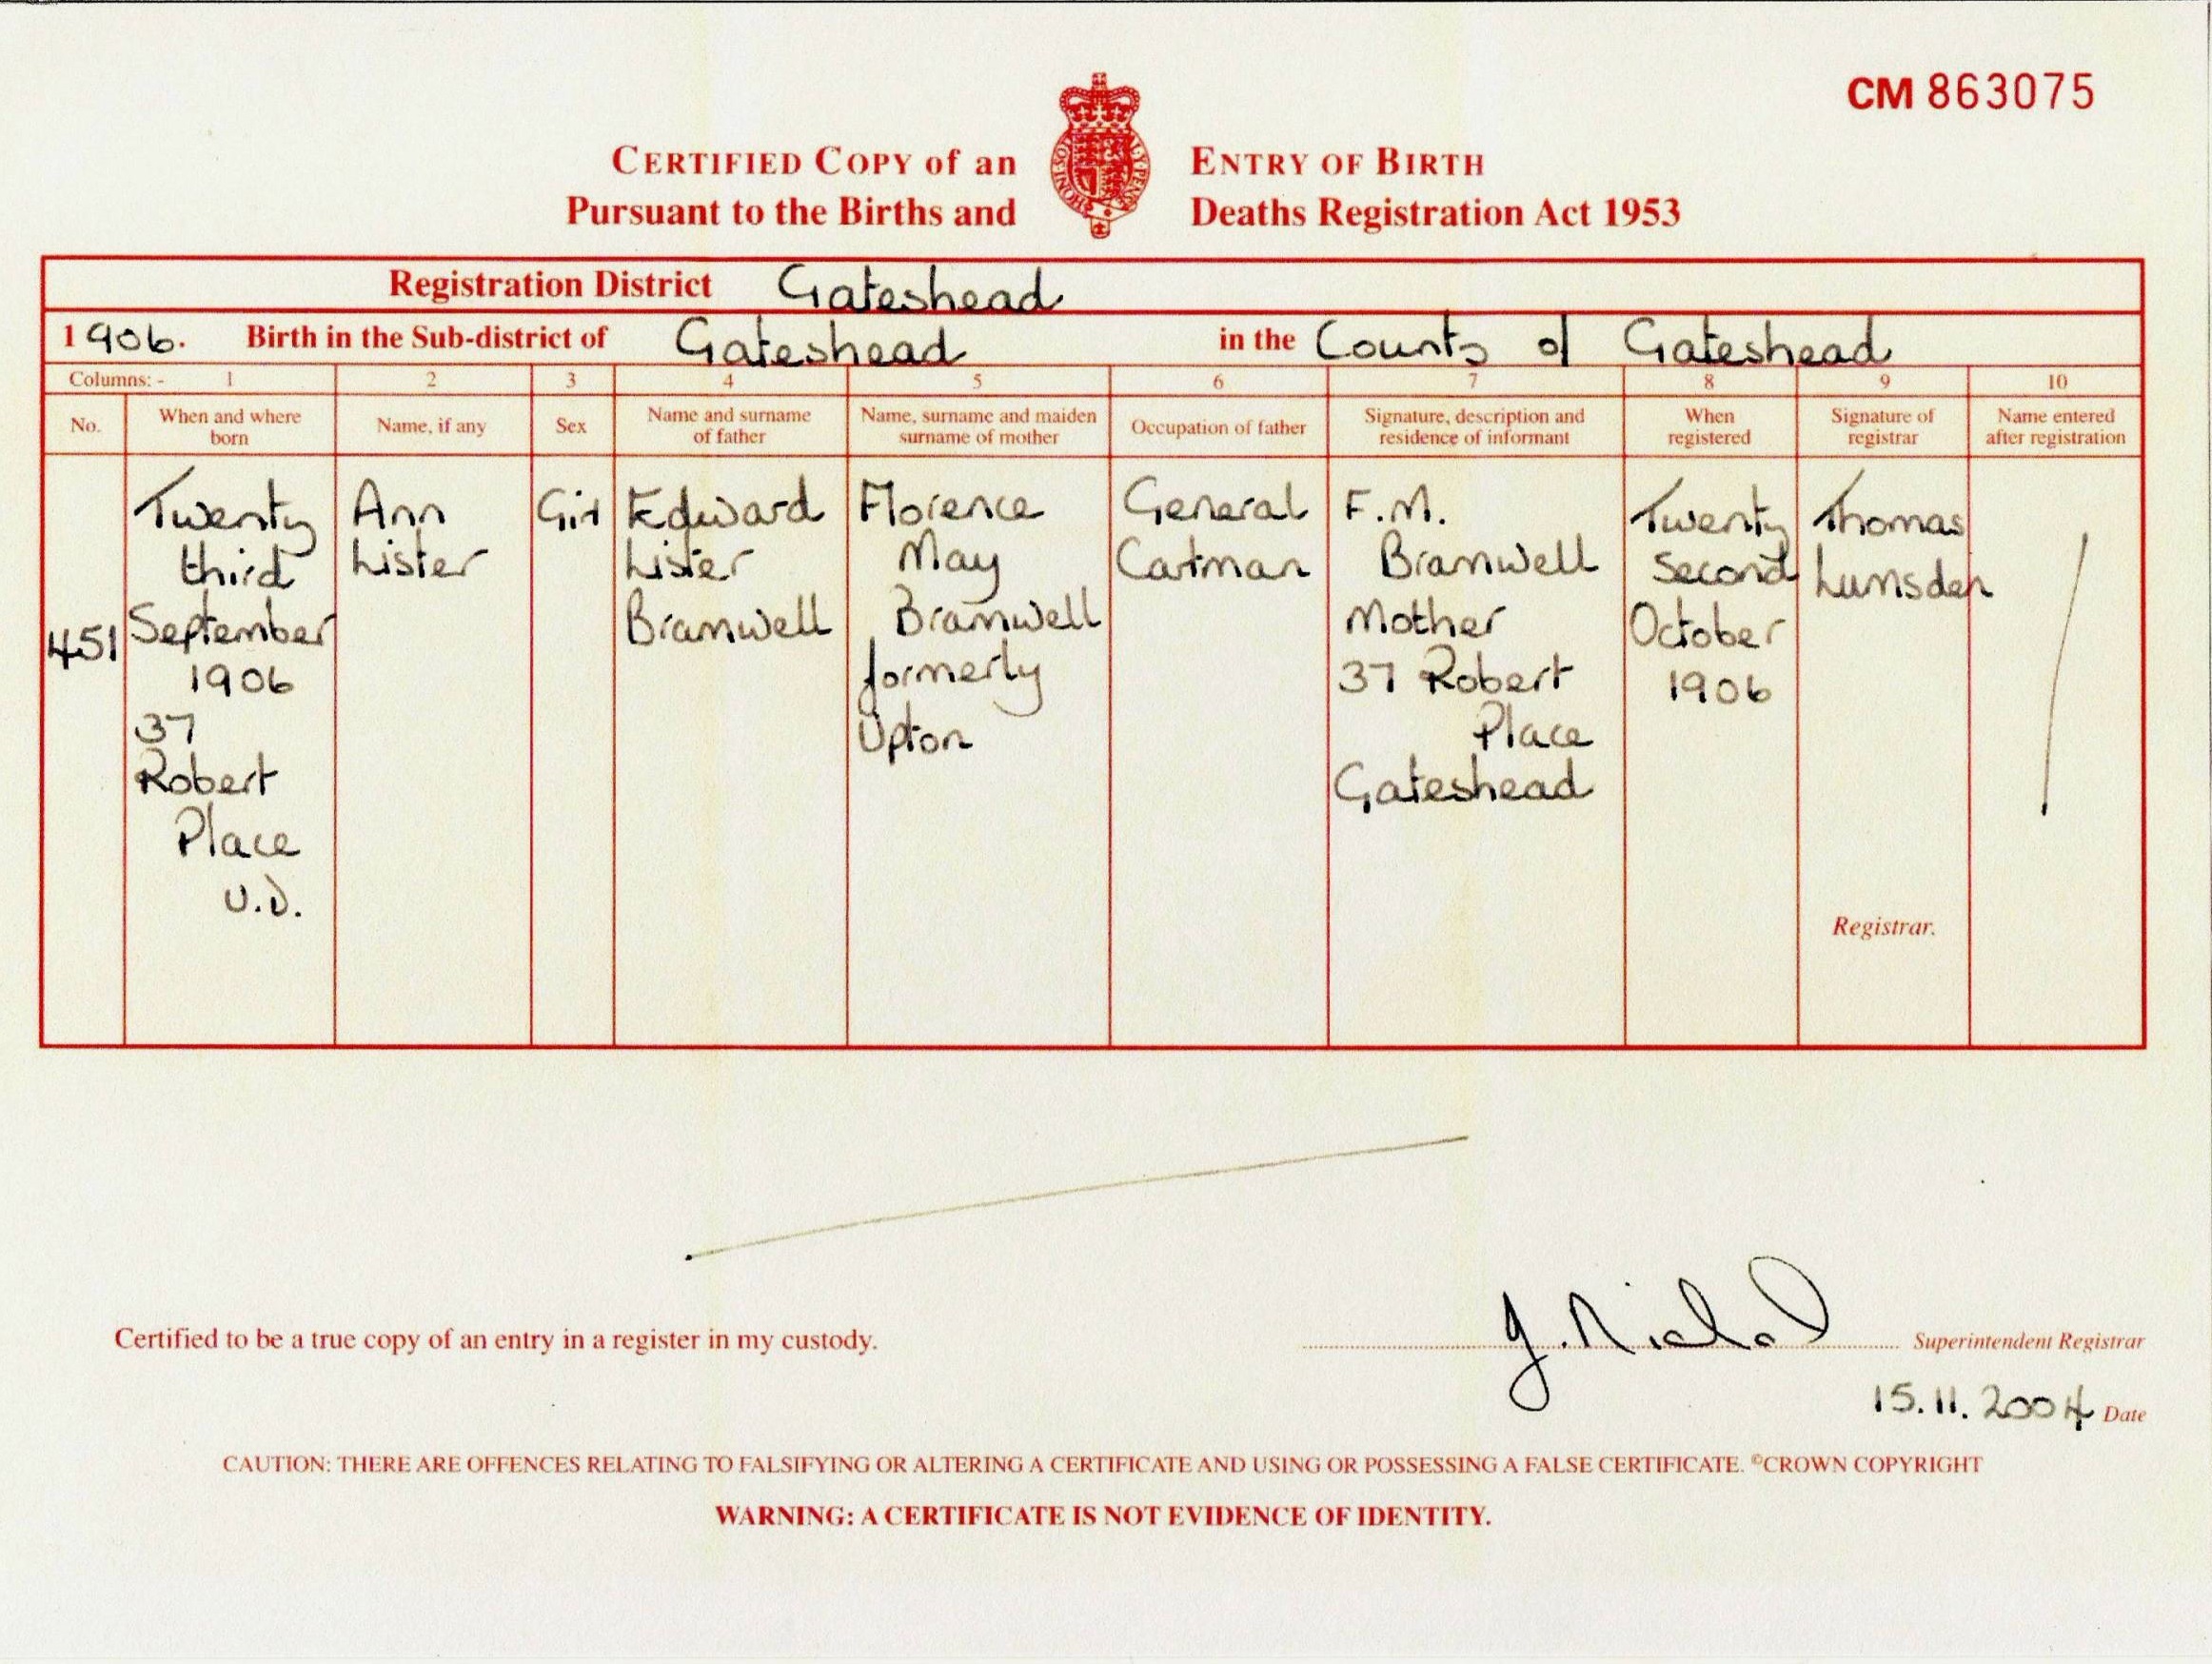 CM 863075
CERTIFIED COPY of an ENTRY OF BIRTH
Pursuant to the Births and Deaths Registration Act 1953
Registration District Gateshead
1906. Birth in the Sub-district of Gateshead in the County of Gateshead
Columns: - 1 2 3 4 5 6 7 8 9 10
No.
When and where
born
Name, if any
Sex
Name and surname
of father
Name, surname and maiden
surname of mother
Occupation of father
Signature, description and
residence of informant
When
registered
Signature of
registrar
Name entered
after registration
451
Twenty
third
September
1906
37
Robert
Place
U.D.
Ann
Lister
Girl
Edward
Lister
Bramwell
Florence
May
Bramwell
formerly
Upton
General
Cartman
F.M.
Bramwell
Mother
37 Robert
Place
Gateshead
Twenty
Second
October
1906
Thomas
Lumsden
Registrar.
Certified to be a true copy of an entry in a register in my custody.
Superintendent Registrar
15.11.2004 Date
CAUTION: THERE ARE OFFENCES RELATING TO FALSIFYING OR ALTERING A CERTIFICATE AND USING OR POSSESSING A FALSE CERTIFICATE. ©CROWN COPYRIGHT
WARNING: A CERTIFICATE IS NOT EVIDENCE OF IDENTITY.